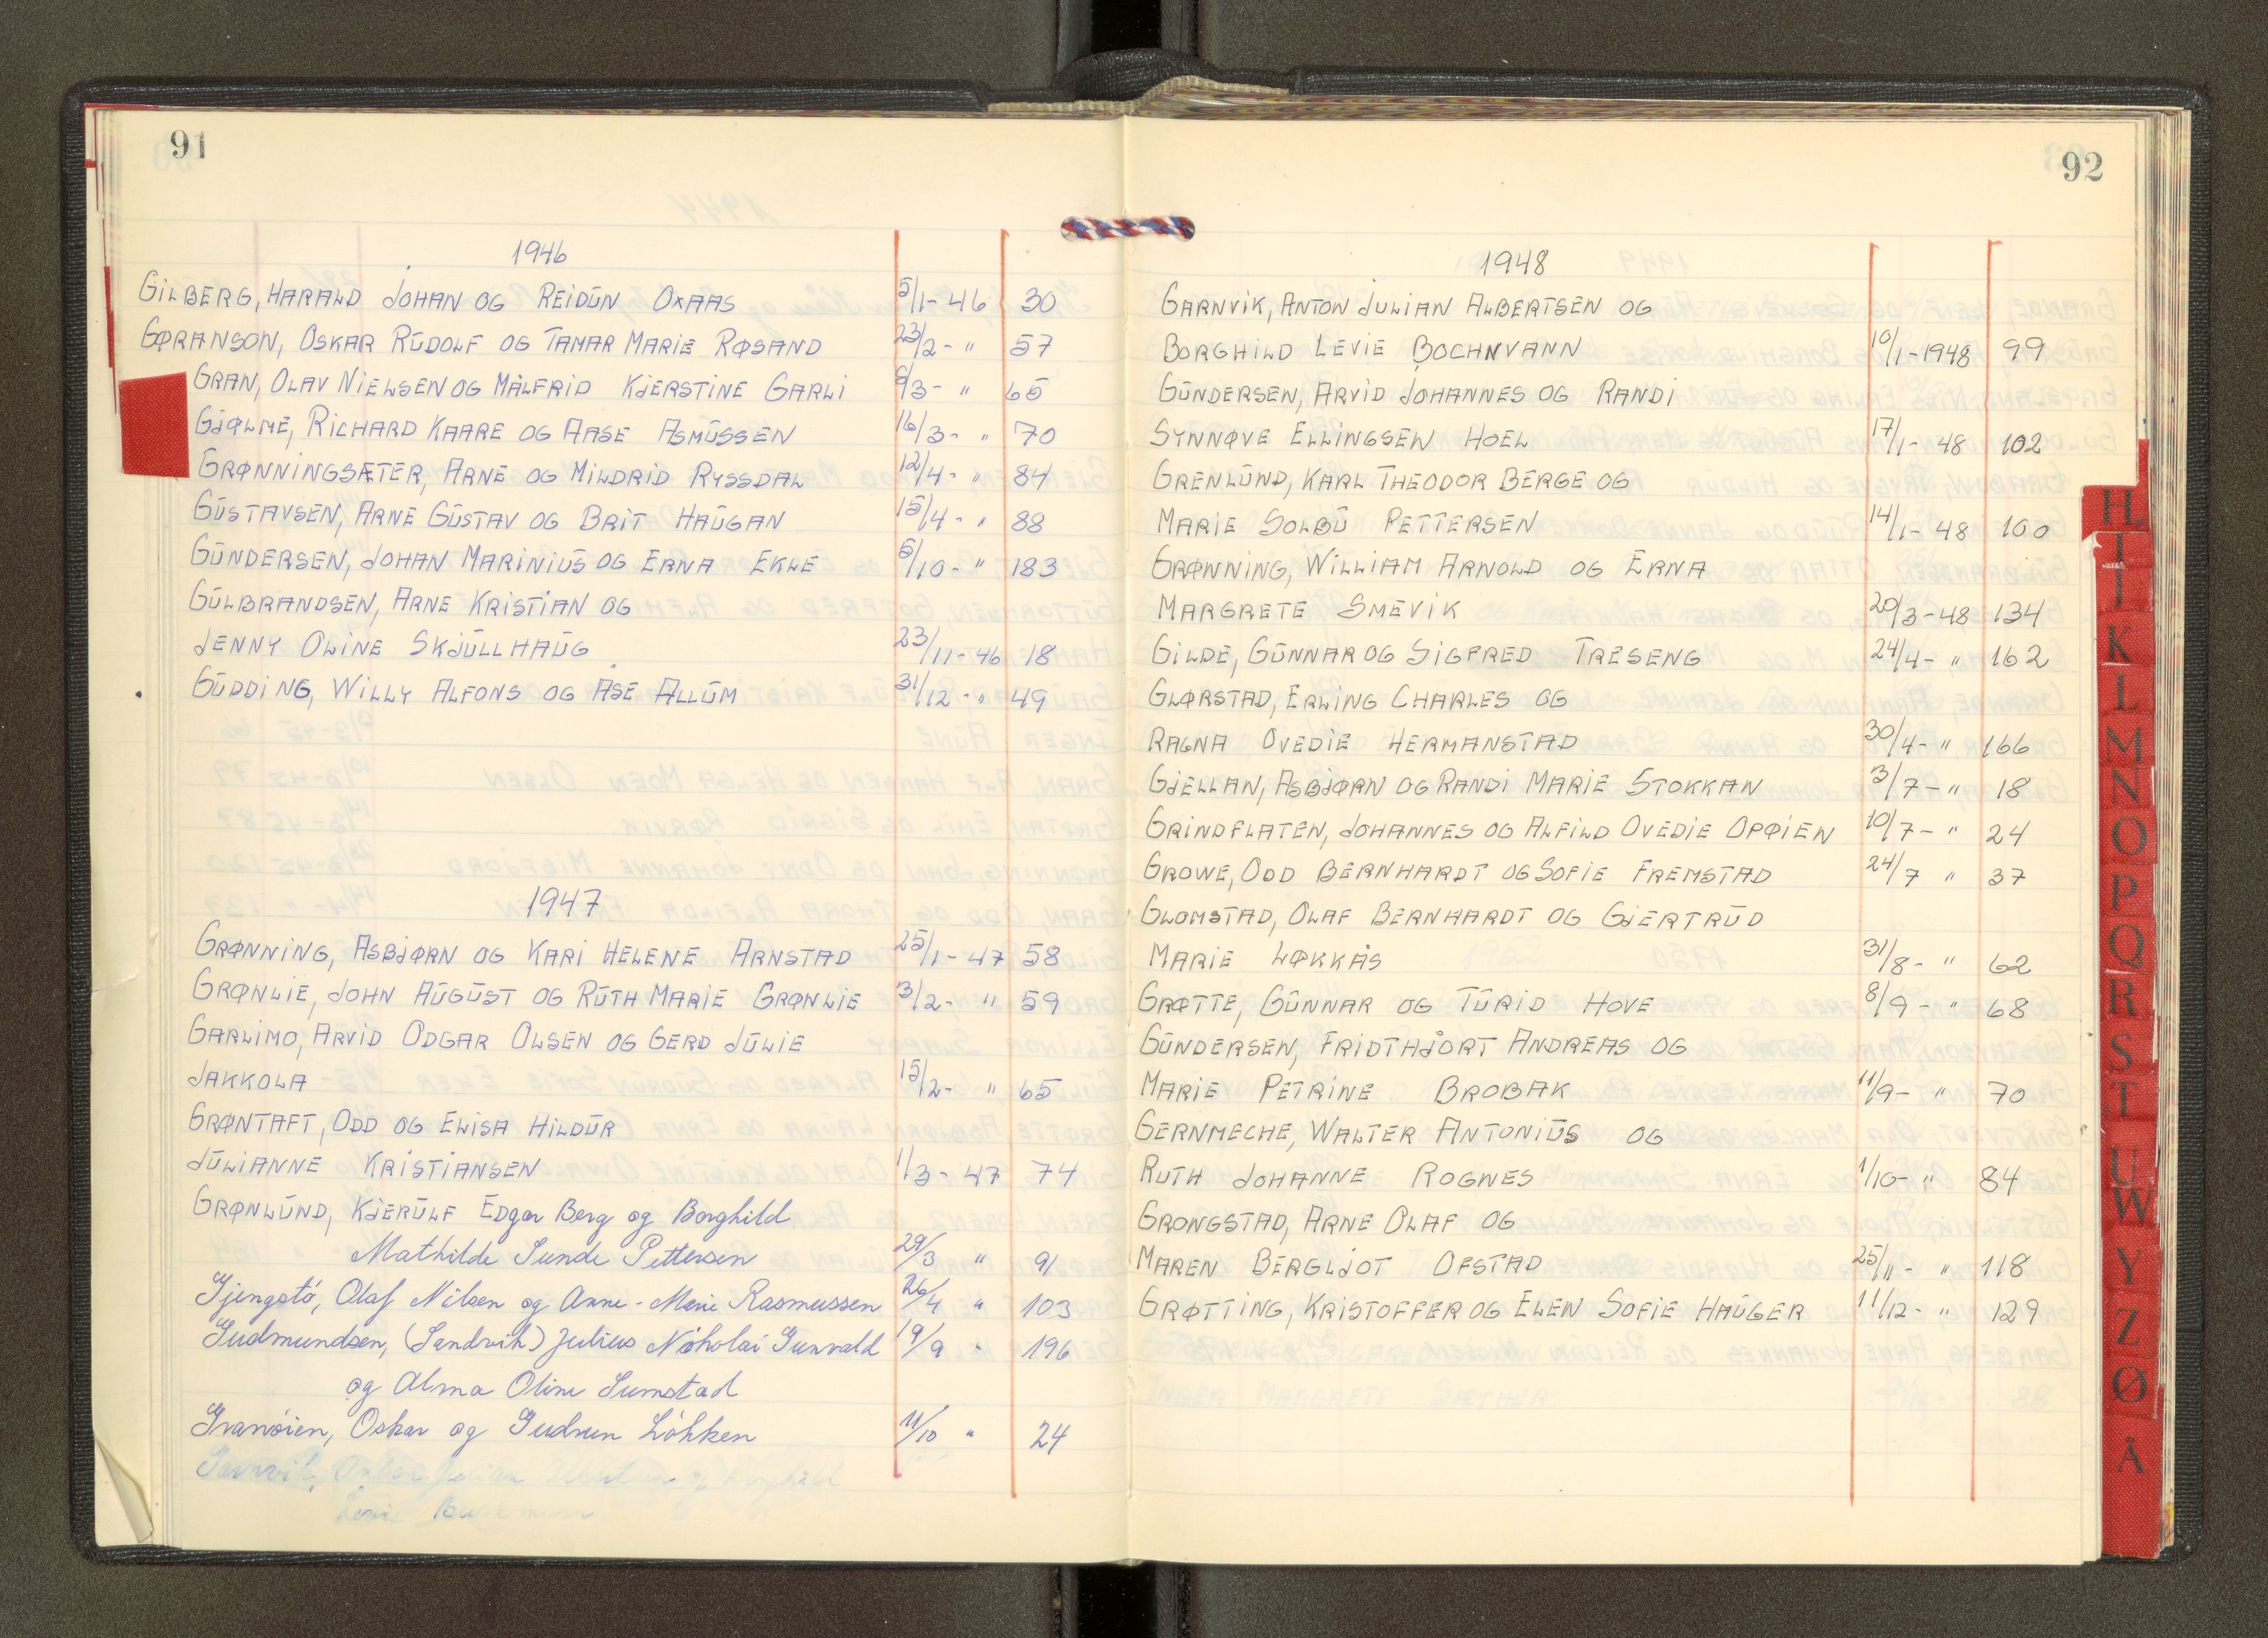 91
1946
GILBERG, HARALD JOHAN OG REIDŪN OXAAS 5/1-46 30
GØRANSON, OSKAR RŪDOLF OG TAMAR MARIE RØSAND 23/2- " 57
GRAN, OLAV NIELSEN OG MÅLFRID KJERSTINE GARLI 9/3- " 65
GJØLME, RICHARD KAARE OG AASE ASMŪSSEN 16/3- " 70
GRØNNINGSÆTER, ARNE OG MILDRID RYSSDAL 12/4- " 84
GŪSTAVSEN, ARNE GŪSTAV OG BRIT HAŪGAN 15/4- " 88
GŪNDERSEN, JOHAN MARINIŪS OG ERNA EKLE 5/10- " 183
GŪLBRANDSEN, ARNE KRISTIAN OG
JENNY OLINE SKJŪLLHAŪG 23/11-46 18
GŪDDING, WILLY ALFONS OG ÅSE ALLŪM 31/12- " 49
1947
GRØNNING, ASBJØRN OG KARI HELENE ARNSTAD 25/1-47 58
GRØNLIE, JOHN AŪGŪST OG RŪTH MARIE GRØNLIE 3/2- " 59
GARLIMO, ARVID ODGAR OLSEN OG GERD JŪLIE
JAKKOLA 15/2- " 65
GRØNTAFT, ODD OG ELISA HILDŪR
JŪLIANNE KRISTIANSEN 1/3-47 74
GRØNLŪND, KJERŪLF Edgar Berg og Borghild
Mathilde Sunde Pettersen 29/3 " 91
Gjengstø, Olaf Nilsen og Anne-Marie Rasmussen 26/4 " 103
Gudmundsen, (Sandvik) Julius Nikolai Gunvald 19/9 " 196
og Alma Oline Sumstad
Granøien, Oskar og Gudrun Løkken 11/10 " 24
92
1948
GARNVIK, ANTON JULIAN ALBERTSEN OG
BORGHILD LEVIE BOCHNVANN 10/1-1948 99
GŪNDERSEN, ARVID JOHANNES OG RANDI
SYNNØVE ELLINGSEN HOEL 17/1-48 102
GRENLŪND, KARL THEODOR BERGE OG
MARIE SOLBŪ PETTERSEN 14/1-48 100
GRØNNING, WILLIAM ARNOLD OG ERNA
MARGRETE SMEVIK 20/3-48 134
GILDE, GŪNNAR OG SIGFRED TRESENG 24/4- " 162
GLØRSTAD, ERLING CHARLES OG
RAGNA OVEDIE HERMANSTAD 30/4- " 166
GJELLAN, ASBJØRN OG RANDI MARIE STOKKAN 3/7- " 18
GRINDFLATEN, JOHANNES OG ALFILD OVEDIE OPØIEN 10/7- " 24
GROWE, ODD BERNHARDT OG SOFIE FREMSTAD 24/7 " 37
GLOMSTAD, OLAF BERNHARDT OG GJERTRŪD
MARIE LØKKÅS 31/8- " 62
GRØTTE, GŪNNAR OG TŪRID HOVE 8/9- " 68
GŪNDERSEN, FRIDTHJORT ANDREAS OG
MARIE PETRINE BROBAK 11/9- " 70
GERNMECHE, WALTER ANTONIŪS OG
RUTH JOHANNE ROGNES 1/10- " 84
GRONGSTAD, ARNE OLAF OG
MAREN BERGLJOT OFSTAD 25/11- " 118
GRØTTING, KRISTOFFER OG ELEN SOFIE HAŪGER 11/12- " 129
H
I
J
K
L
M
N
O
P
Q
R
S
T
U
W
Y
Z
Ø
Å